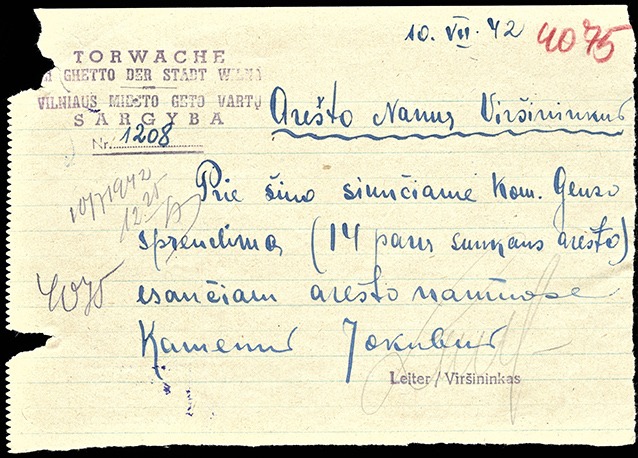 10. VII. 42 4075
TORWACHE
GHETTO DER STADT WILNA
VILNIAUS MIESTO GETO VARTŲ
SARGYBA
Nr. 1208
Arešto Namų Viršininkui
10/7 1942
12.25
Prie šino siunčiame Kom. Genso
sprendimą (14 parų sunkaus arešto)
4075
esančiam arešto namuose
Kamenui Jokubui
Leiter / Viršininkas